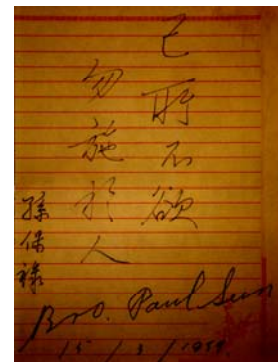 己所不欲
勿施於人
孫保祿
Bro. Paul Sun
15/3/1959